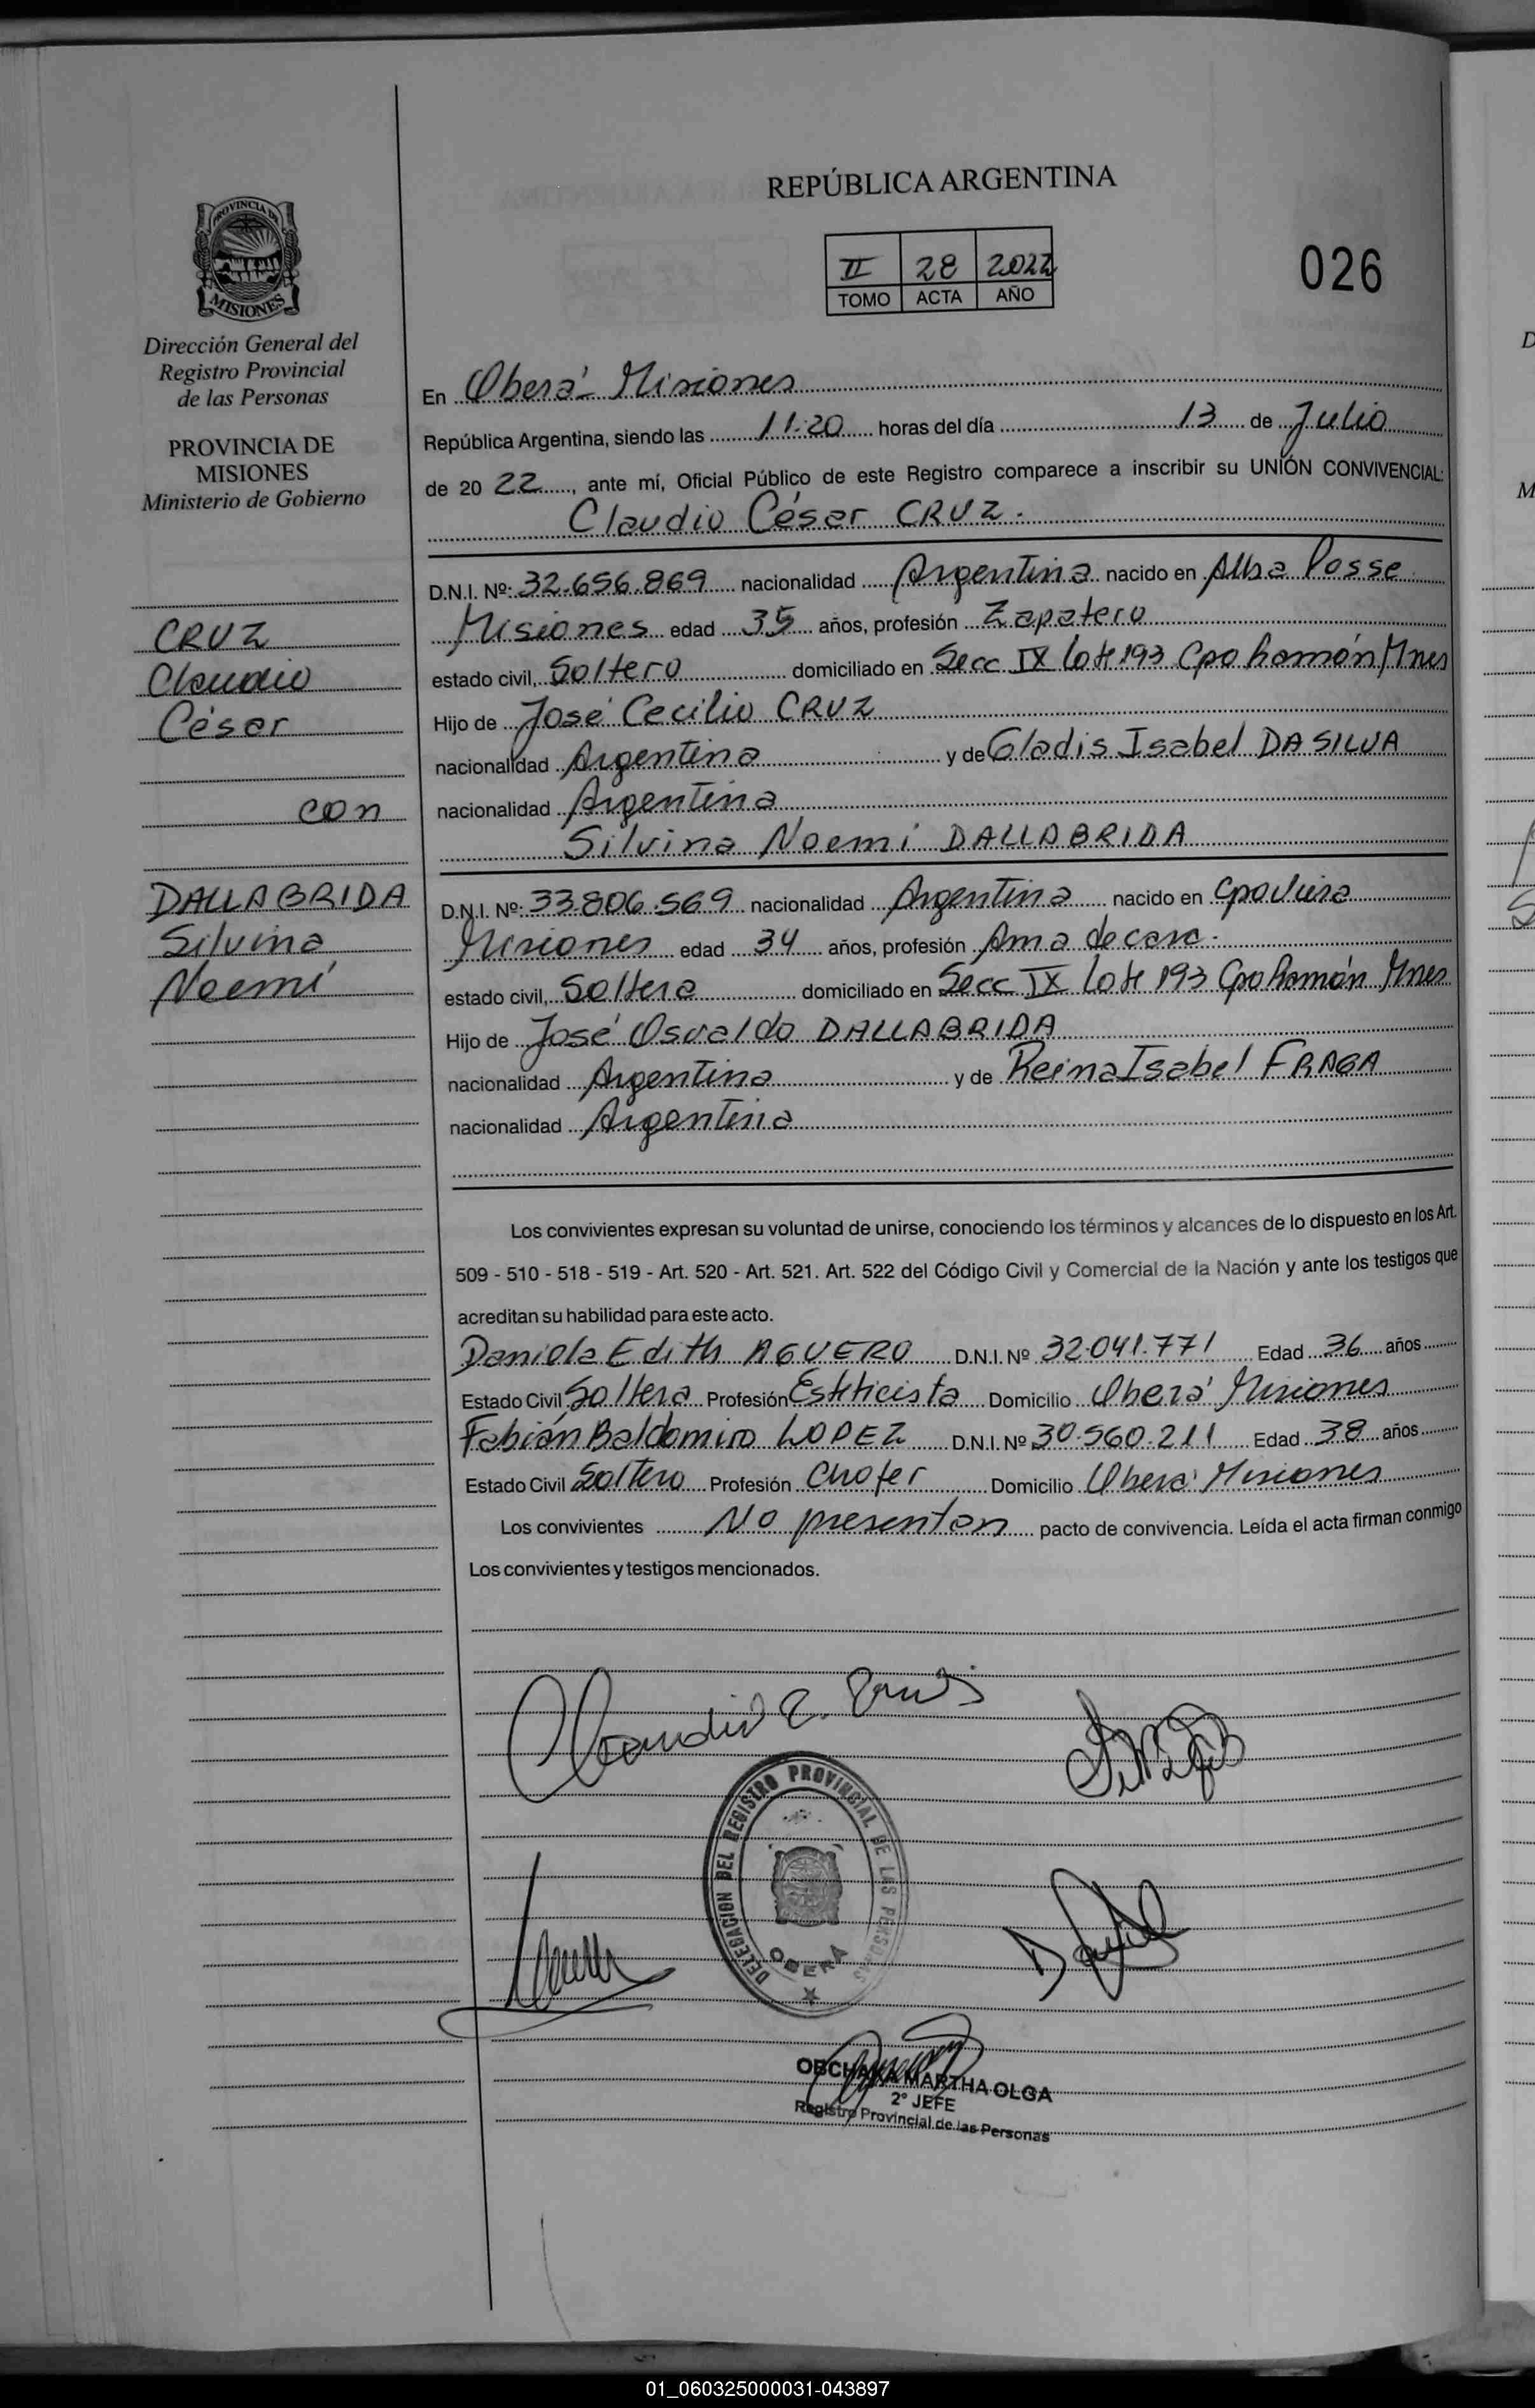 REPÚBLICA ARGENTINA
II 28 2022
TOMO ACTA AÑO
026
PROVINCIA DE
MISIONES
Dirección General del
Registro Provincial
de las Personas
PROVINCIA DE
MISIONES
Ministerio de Gobierno
CRUZ
Claudio
César
con
DALLABRIDA
Silvina
Noemí
En Oberá - Misiones
República Argentina, siendo las 11:20 horas del día 13 de Julio
de 20 22, ante mí, Oficial Público de este Registro comparece a inscribir su UNIÓN CONVIVENCIAL:
Claudio César CRUZ.
D.N.I. Nº: 32.656.869 nacionalidad Argentina nacido en Alba Posse
Misiones edad 35 años, profesión Zapatero
estado civil, Soltero domiciliado en Secc IX lote 193 Cpo Ramón Mnes
Hijo de José Cecilio CRUZ
nacionalidad Argentina y de Gladis Isabel DA SILVA
nacionalidad Argentina
Silvina Noemi DALLABRIDA
D.N.I. Nº: 33.806.569 nacionalidad Argentina nacido en Cpo Viera
Misiones edad 34 años, profesión Ama de casa.
estado civil, Soltera domiciliado en Secc IX lote 193 Cpo Ramón Mnes
Hijo de José Osvaldo DALLABRIDA
nacionalidad Argentina y de Reina Isabel FRAGA
nacionalidad Argentina
Los convivientes expresan su voluntad de unirse, conociendo los términos y alcances de lo dispuesto en los Art.
509 - 510 - 518 - 519 - Art. 520 - Art. 521. Art. 522 del Código Civil y Comercial de la Nación y ante los testigos que
acreditan su habilidad para este acto.
Daniela Edith AGUERO D.N.I. Nº 32.041.771 Edad 36 años
Estado Civil Soltera Profesión Esteticista Domicilio Oberá Misiones
Fabián Baldomiro LOPEZ D.N.I. Nº 30.560.211 Edad 38 años
Estado Civil Soltero Profesión Chofer Domicilio Oberá Misiones
Los convivientes No presentan pacto de convivencia. Leída el acta firman conmigo
Los convivientes y testigos mencionados.
Claudio C. Cruz
DELEGACION DEL REGISTRO PROVINCIAL DE LAS PERSONAS
OBERA
OBCHAKA MARTHA OLGA
2º JEFE
Registro Provincial de las Personas
01_060325000031-043897